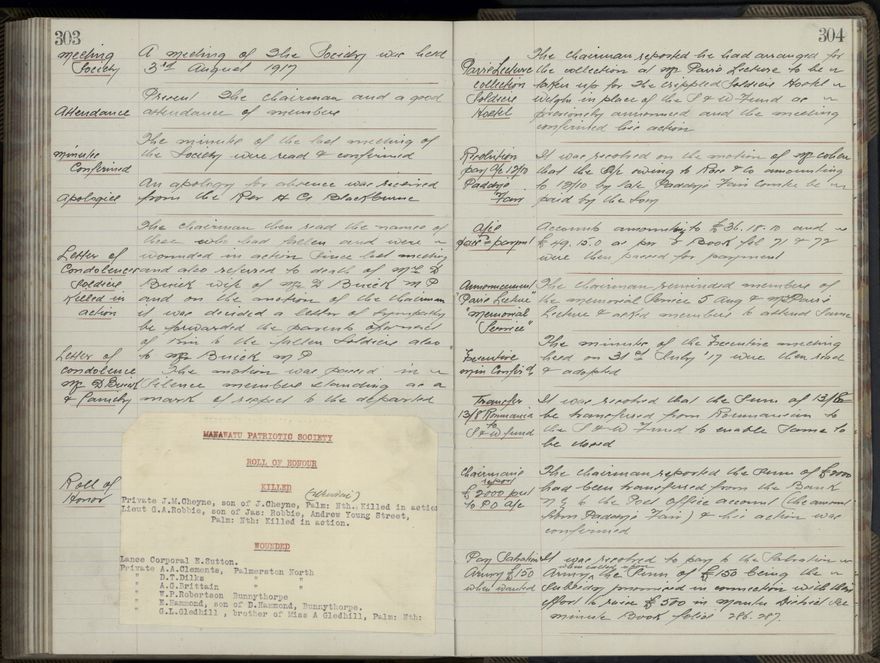 303
Meeting
Society
A meeting of the Society was held
3rd August 1917
Attendance
Present The Chairman and a good
attendance of members
Minutes
Confirmed
The minutes of the last meeting of
the Society were read & confirmed
Apologies
An apology for absence was received
from the Rev H G Blackburne
Letter of
Condolence
Soldiers
Killed in
action
The Chairman then read the names of
those who had fallen and were
wounded in action since last meeting
and also referred to death of Mrs D
Buick wife of Mr D Buick M P
and on the motion of the Chairman
it was decided a letter of sympathy
be forwarded the parents or
of kin to the fallen Soldiers also
to Mr Buick M P
Letter of
condolence
Mr D Buick
& Family
The motion was passed in
silence members standing as a
mark of respect to the departed
Roll of
Honor
MANAWATU PATRIOTIC SOCIETY
ROLL OF HONOUR
KILLED
Private J.M.Cheyne, son of J.Cheyne, Palm: Nth. Killed in action
Lieut G.A.Robbie, son of Jas: Robbie, Andrew Young Street,
Palm: Nth: Killed in action.
WOUNDED
Lance Corporal E.Sutton.
Private A.A.Clements, Palmerston North
" D.T.Dilks " "
" A.G.Brittain " "
" W.P.Robertson Bunnythorpe
" E.Hammond, son of D.Hammond, Bunnythorpe.
" G.L.Gledhill, brother of Miss A Gledhill, Palm: Nth:
304
Parr's Lecture
collection
Soldiers
Hostel
The Chairman reported he had arranged for
the collection at Mr Parr's Lecture to be
taken up for the Crippled Soldiers Hostel
Welgtn in place of the S & W Fund as
previously announced and the meeting
confirmed his action
Resolution
pay a/c 12/10
Paddys
Fair
It was resolved on the motion of Mr Cohen
that the a/c owing to & Co amounting
to 12/10 by late Paddys Fair Comtee be
paid by the Socy
A/cs
passd for payment
Accounts amounting to £36.18.10 and
£49.15.0 as per Book fol 71 & 72
were then passed for payment
Announcement
Parr's Lecture
"Memorial
Service"
The Chairman reminded members of
the memorial Service 5 Aug & Mr Parr's
Lecture & asked members to attend same
Executive
min Confir'd
The minutes of the Executive meeting
held on 31st July '17 were then read
& adopted
Transfer
13/8 Roumania
to
S & W fund
It was resolved that the sum of 13/8
be transferred from Roumanian to
the S & W Fund to enable same to
be closed
Chairmans
report
£2000 pd
to P.O a/c
The Chairman reported the sum of £2000
had been transferred from the Bank
N Z to the Post Office account (the amount
from Paddys Fair) & his action was
confirmed
Pay Salvation
Army £150
when wanted
It was resolved to pay to the Salvation
Army when called upon the sum of £150 being the
Subsidy promised in connection with their
effort to raise £500 in Manatu District See
minute Book folios 286.287.